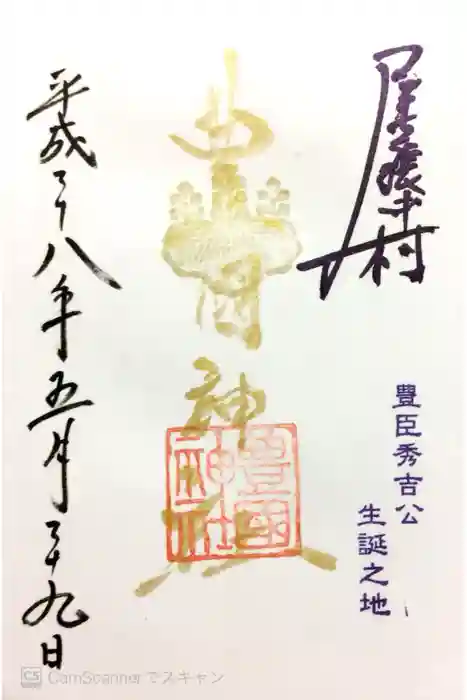 尾張中村
豊臣秀吉公
生誕之地
豊国神社
豊國
神社
平成二十八年五月二十九日
CS CamScannerでスキャン